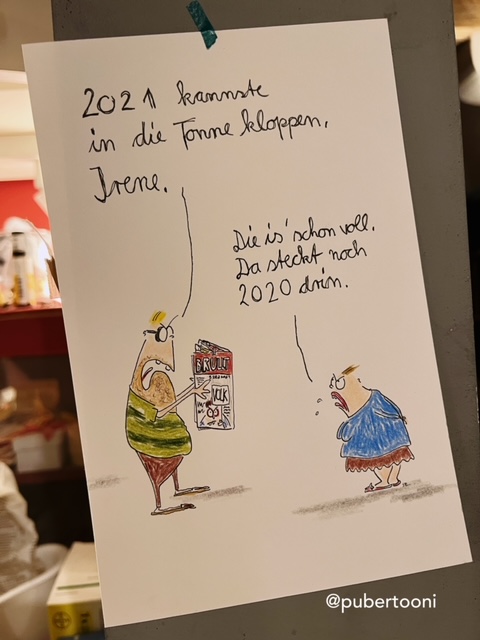 2021 kannste
in die Tonne kloppen,
Irene.
Die is' schon voll.
Da steckt noch
2020 drin.
BRÜLL
VOLK
@pubertooni